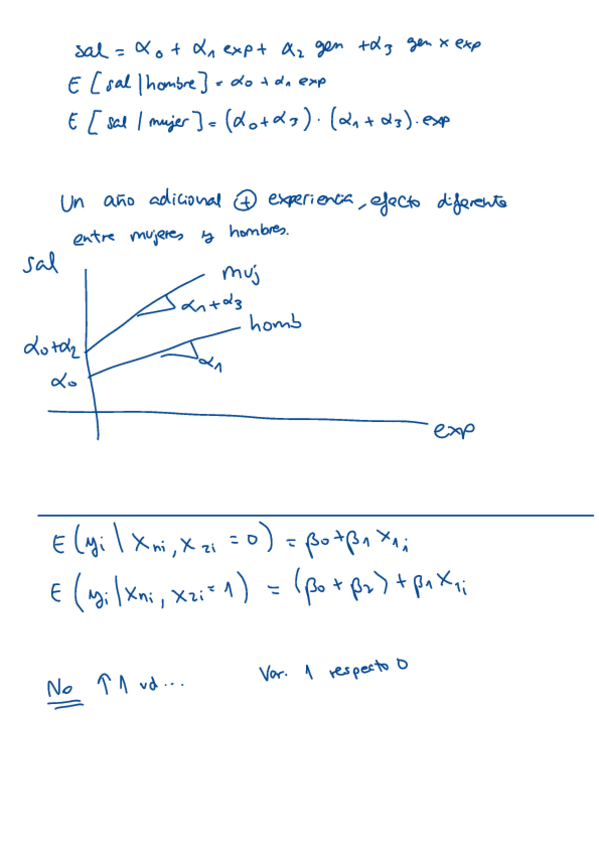 sal = α₀ + α₁ exp + α₂ gen + α₃ gen x exp
E [sal | hombre] = α₀ + α₁ exp
E [sal / mujer] = (α₀ + α₃) · (α₁ + α₃) · exp
Un año adicional ⊕ experiencia, efecto diferente
entre mujeres y hombres.
sal
muj
α₁ + α₃
homb
α₀+α₂
α₁
α₀
exp
E (yᵢ | Xₙᵢ, X₂ᵢ = 0) = β₀ + β₁ X₁ᵢ
E (yᵢ | Xₙᵢ, X₂ᵢ = 1) = (β₀ + β₂) + β₁ X₁ᵢ
No ↑ 1 ud... Var. 1 respecto 0